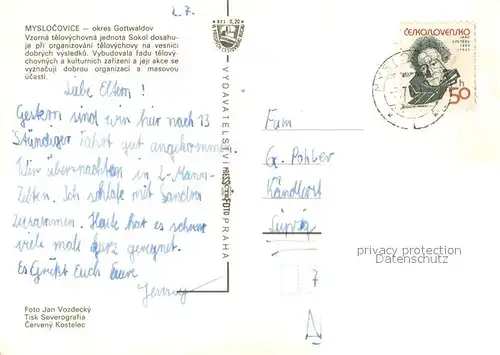 2.7.
MYSLOČOVICE – okres Gottwaldov
Vzorná tělovýchovná jednota Sokol dosahu-
je při organizování tělovýchovy na vesnici
dobrých výsledků. Vybudovala řadu tělový-
chovných a kulturních zařízení a její akce se
vyznačují dobrou organizací a masovou
účastí.
Liebe Eltern!
Gestern sind wir hier nach 13
Stündiger Fahrt gut angekommen.
Wir übernachten in 2-Mann-
Zelten. Ich schlafe mit Sandra
zusammen. Heute hat es schon
viele male kurz geregnet.
Es Grüßt Euch Eure
Jenny
Foto Jan Vozdecký
Tisk Severografia
Červený Kostelec
KčS 0,20
VYDAVATELSTVÍ PRESSFOTO PRAHA
ČESKOSLOVENSKO
50 h
Fam
G. Pohler
Leipzig
7
privacy protection
DDR-ANSICHTSKARTEN.DE